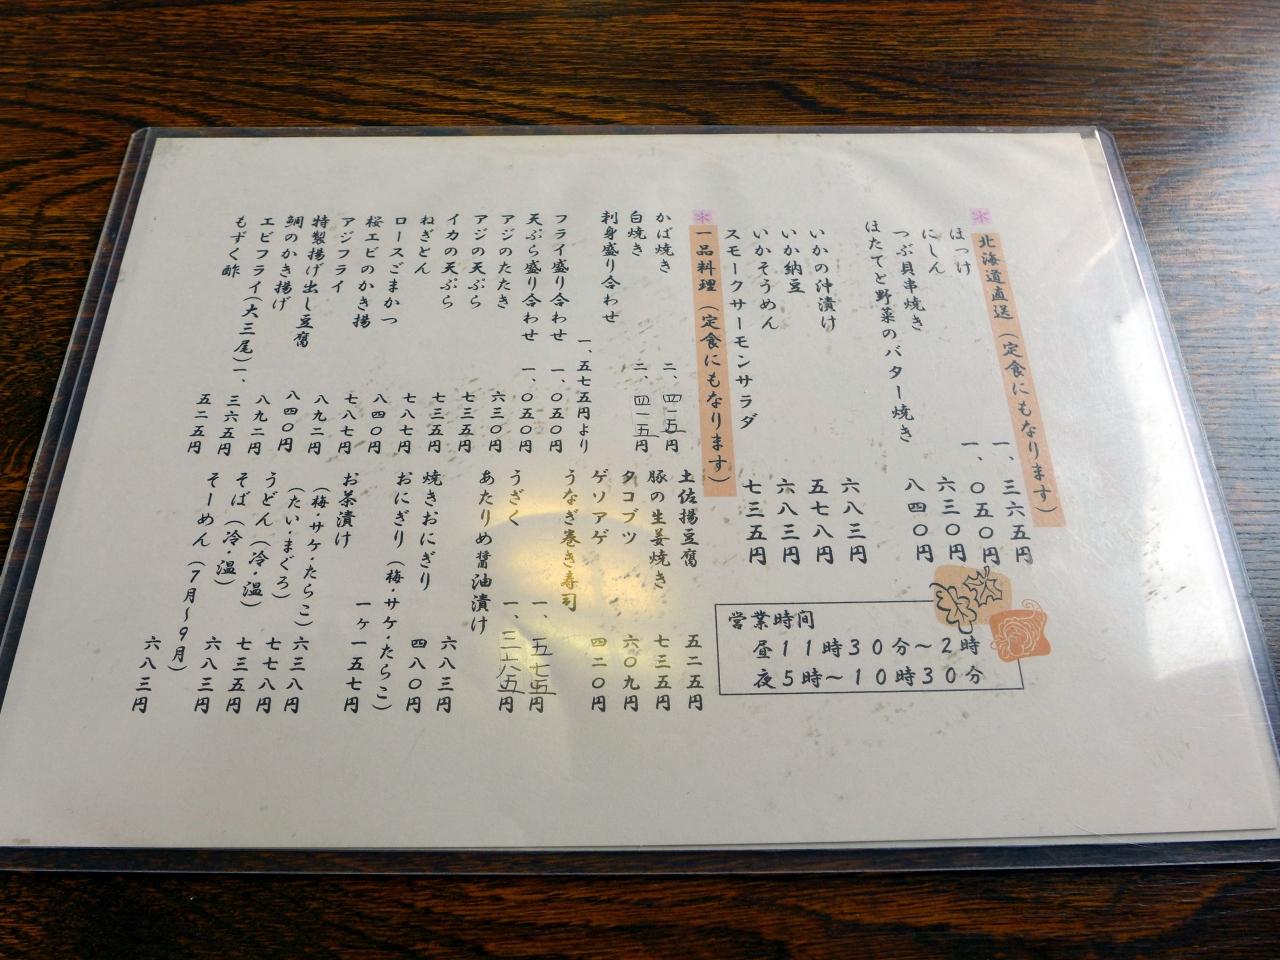 ＊北海道直送（定食にもなります）
ほっけ 一、三六五円
にしん 一、〇五〇円
つぶ貝串焼き 六三〇円
ほたてと野菜のバター焼き 八四〇円
いかの沖漬け 六八三円
いか納豆 五七八円
いかそうめん 六八三円
スモークサーモンサラダ 七三五円
＊一品料理（定食にもなります）
かば焼き 二、四一五円
白焼き 二、四一五円
刺身盛り合わせ 一、五七五円より
フライ盛り合わせ 一、〇五〇円
天ぷら盛り合わせ 一、〇五〇円
アジのたたき 六三〇円
アジの天ぷら 七三五円
イカの天ぷら 七三五円
ねぎとん 七八七円
ロースごまかつ 八四〇円
桜エビのかき揚 七八七円
アジフライ 八九二円
特製揚げ出し豆腐 八四〇円
鯛のかき揚げ 八九二円
エビフライ（大三尾）一、三六五円
もずく酢 五二五円
土佐揚豆腐 五二五円
豚の生姜焼き 七三五円
タコブツ 六〇九円
ゲソアゲ 四二〇円
うなぎ巻き寿司 一、五七五円
うざく 一、三六五円
あたりめ醤油漬け 六八三円
焼きおにぎり 四八〇円
おにぎり（梅・サケ・たらこ）
一ヶ一五七円
お茶漬け
（梅・サケ・たらこ） 六三八円
（たい・まぐろ） 七七八円
うどん（冷・温） 七三五円
そば（冷・温） 六八三円
そーめん（7月〜9月） 六八三円
営業時間
昼１１時３０分〜２時
夜５時〜１０時３０分